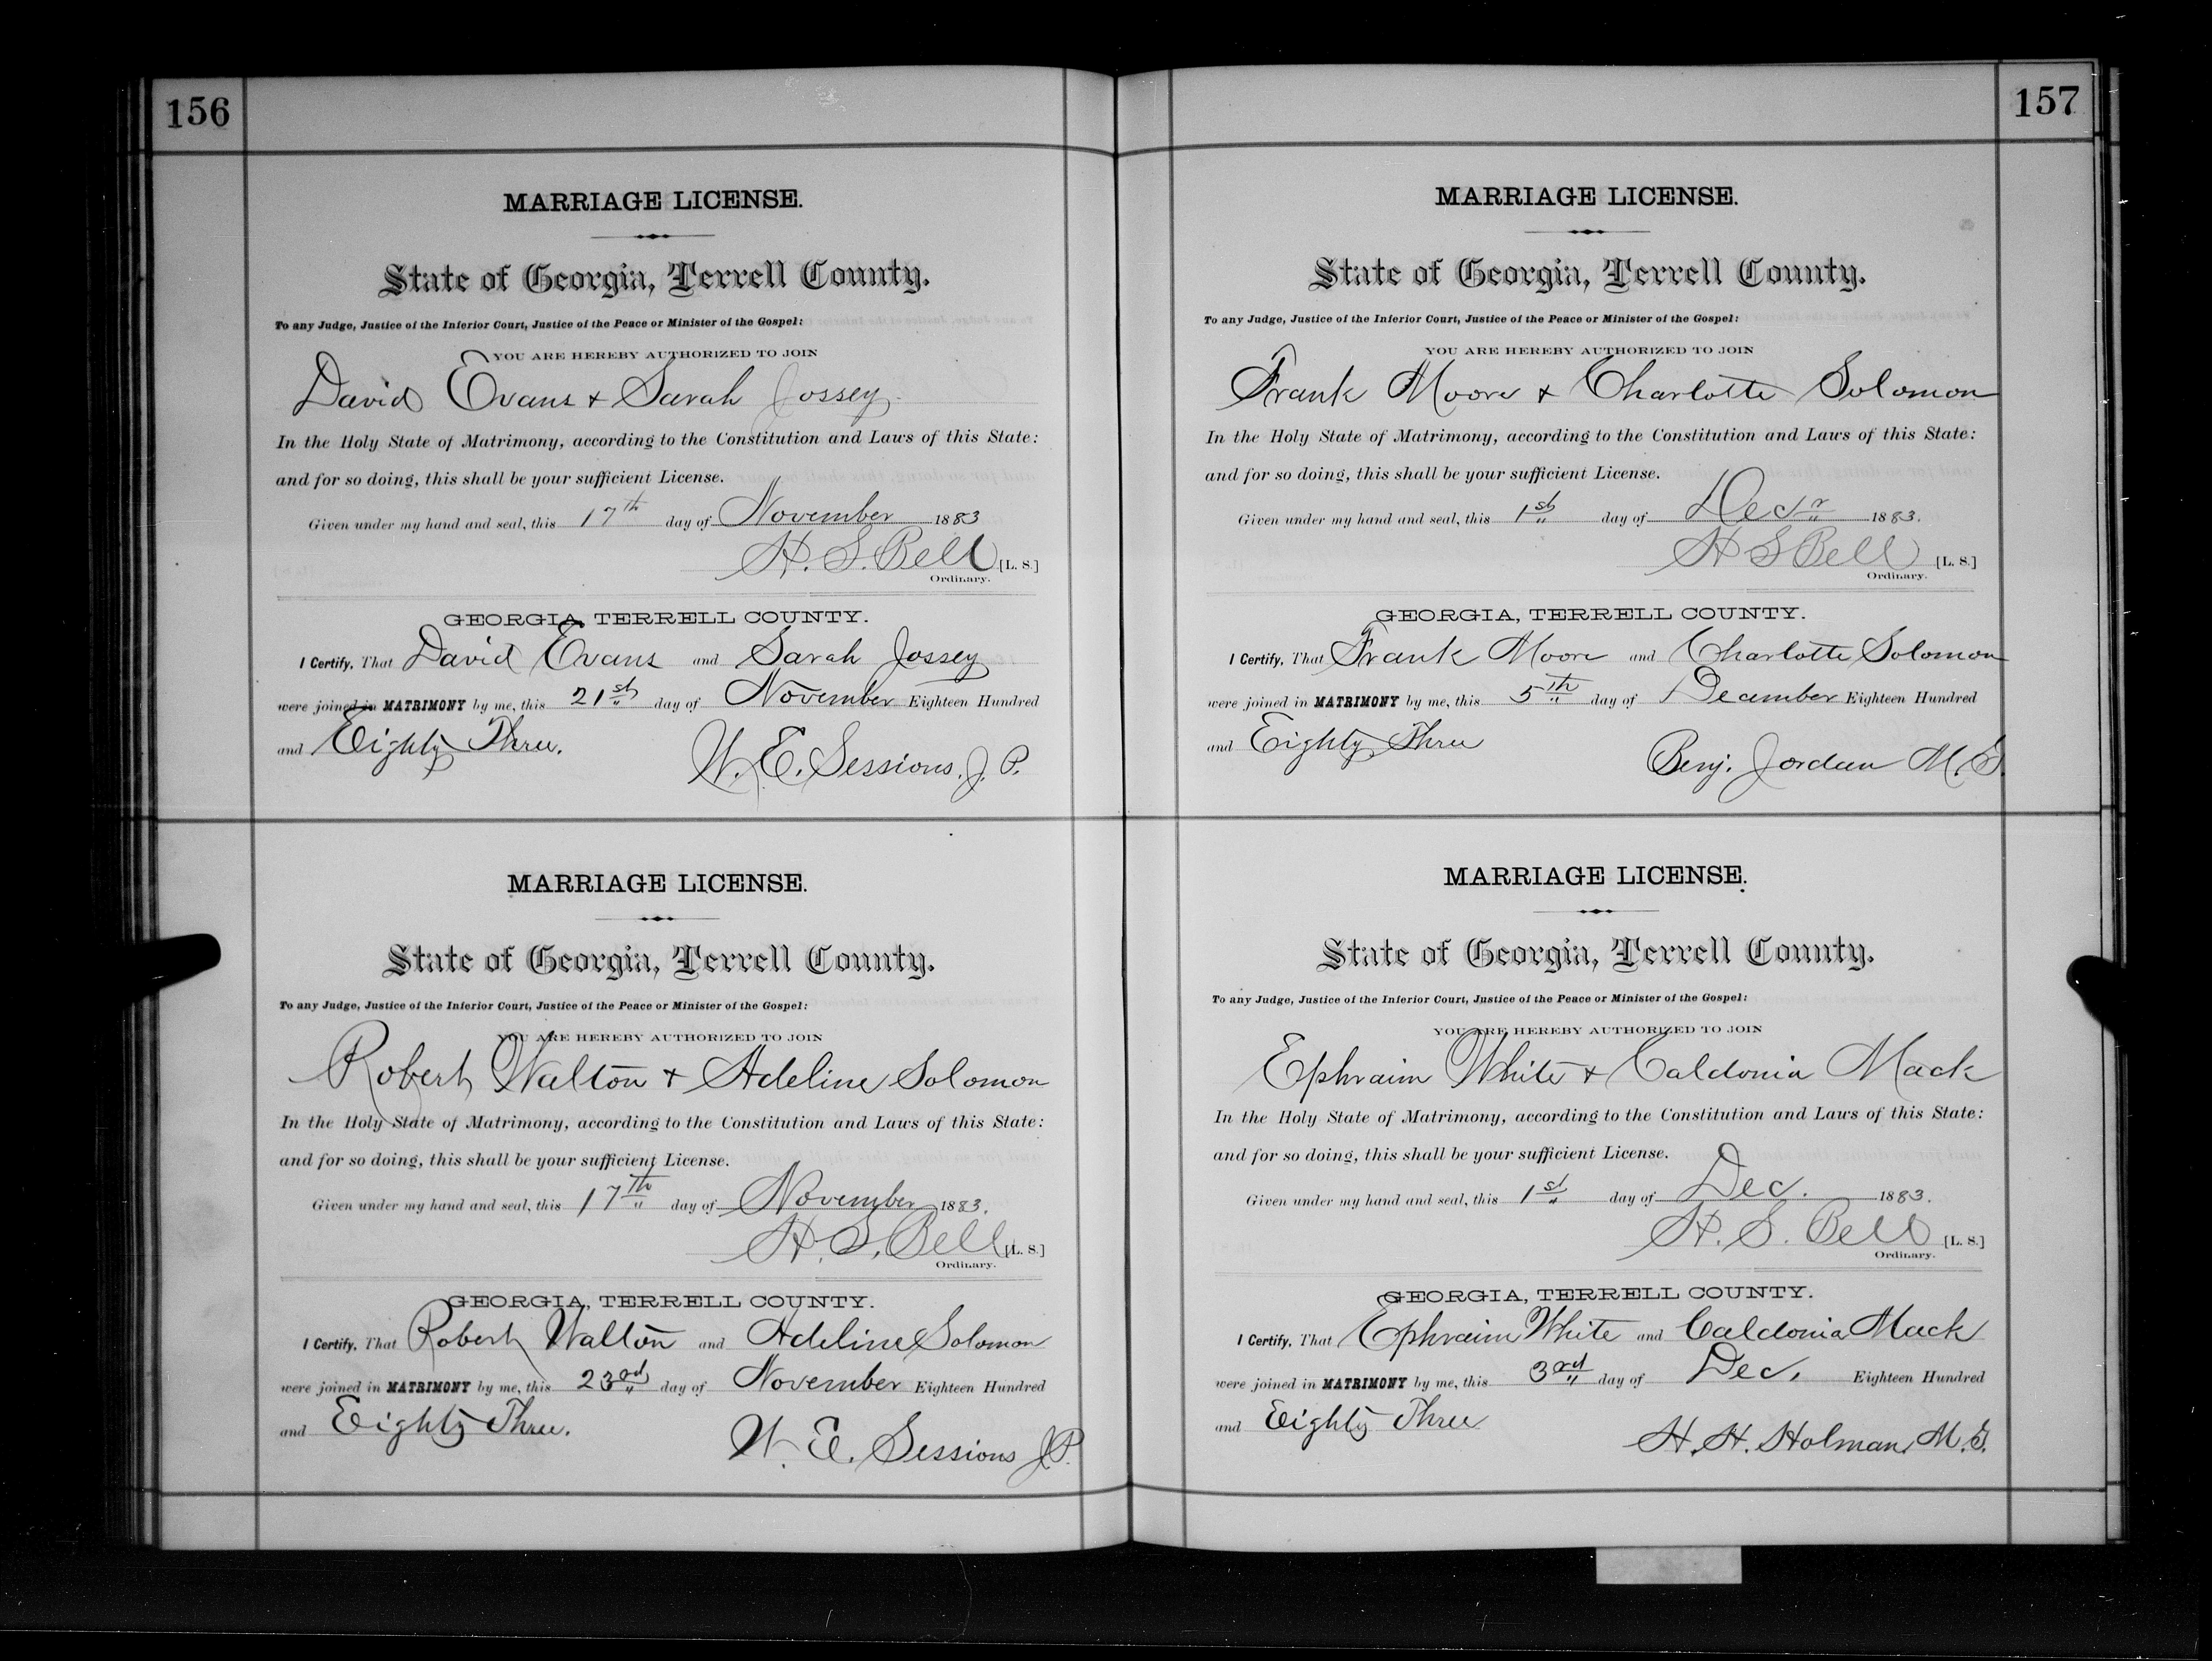 156
MARRIAGE LICENSE.
State of Georgia, Terrell County.
To any Judge, Justice of the Inferior Court, Justice of the Peace or Minister of the Gospel:
YOU ARE HEREBY AUTHORIZED TO JOIN
David Evans + Sarah Jossey
In the Holy State of Matrimony, according to the Constitution and Laws of this State:
and for so doing, this shall be your sufficient License.
Given under my hand and seal, this 17th day of November 1883
H. S. Bell [L. S.]
Ordinary.
GEORGIA, TERRELL COUNTY.
I Certify, That David Evans and Sarah Jossey
were joined in MATRIMONY by me, this 21st day of November Eighteen Hundred
and Eighty Three.
W. E. Sessions. J. P.
MARRIAGE LICENSE.
State of Georgia, Terrell County.
To any Judge, Justice of the Inferior Court, Justice of the Peace or Minister of the Gospel:
YOU ARE HEREBY AUTHORIZED TO JOIN
Robert Walton + Adeline Solomon
In the Holy State of Matrimony, according to the Constitution and Laws of this State:
and for so doing, this shall be your sufficient License.
Given under my hand and seal, this 17th day of November 1883.
H. S. Bell [L. S.]
Ordinary.
GEORGIA, TERRELL COUNTY.
I Certify, That Robert Walton and Adeline Solomon
were joined in MATRIMONY by me, this 23rd day of November Eighteen Hundred
and Eighty Three.
W. E. Sessions J.P.
157
MARRIAGE LICENSE.
State of Georgia, Terrell County.
To any Judge, Justice of the Inferior Court, Justice of the Peace or Minister of the Gospel:
YOU ARE HEREBY AUTHORIZED TO JOIN
Frank Moore + Charlotte Solomon
In the Holy State of Matrimony, according to the Constitution and Laws of this State:
and for so doing, this shall be your sufficient License.
Given under my hand and seal, this 1st day of Decr 1883.
H S Bell [L. S.]
Ordinary.
GEORGIA, TERRELL COUNTY.
I Certify, That Frank Moore and Charlotte Solomon
were joined in MATRIMONY by me, this 5th day of December Eighteen Hundred
and Eighty Three
Benj. Jordan M. G.
MARRIAGE LICENSE.
State of Georgia, Terrell County.
To any Judge, Justice of the Inferior Court, Justice of the Peace or Minister of the Gospel:
YOU ARE HEREBY AUTHORIZED TO JOIN
Ephraim White + Caldonia Mack
In the Holy State of Matrimony, according to the Constitution and Laws of this State:
and for so doing, this shall be your sufficient License.
Given under my hand and seal, this 1st day of Dec. 1883.
H. S. Bell [L. S.]
Ordinary.
GEORGIA, TERRELL COUNTY.
I Certify, That Ephraim White and Caldonia Mack
were joined in MATRIMONY by me, this 3rd day of Dec. Eighteen Hundred
and Eighty Three
H. H. Holman, M. G.